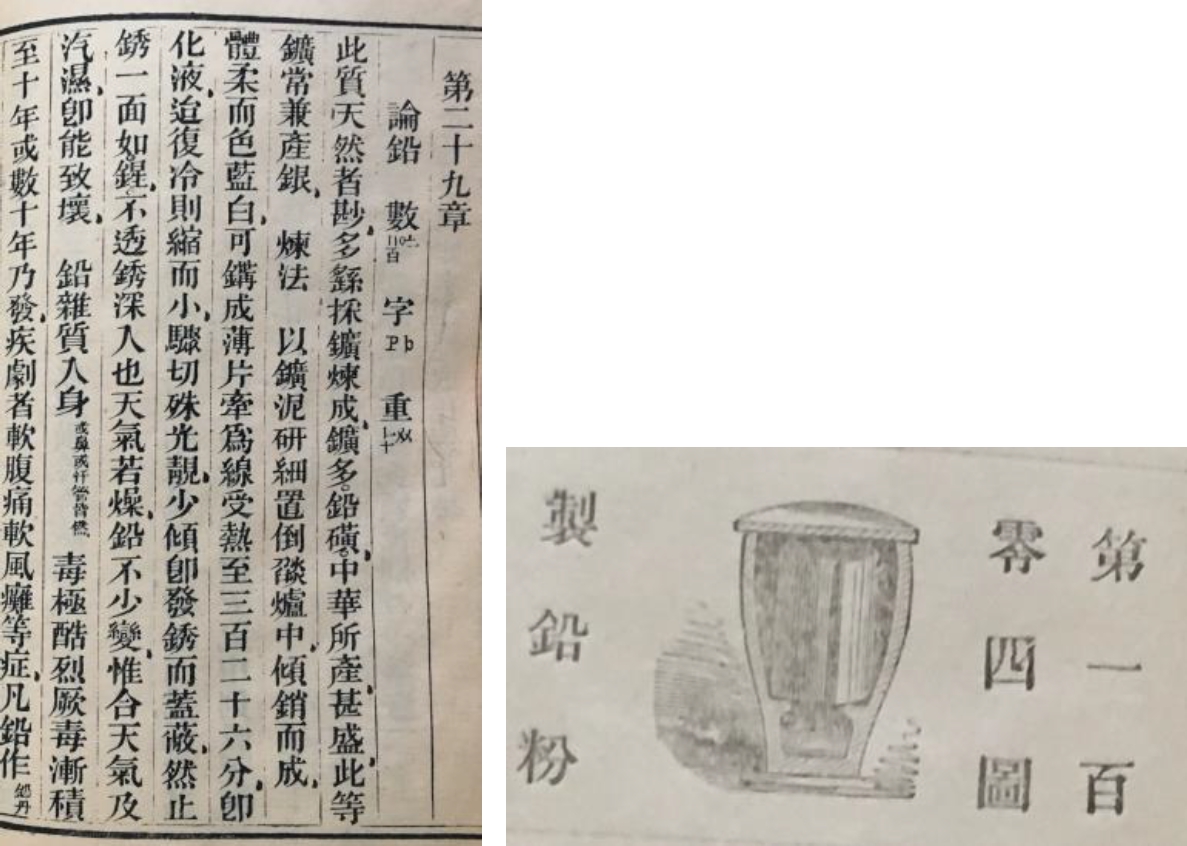 第二十九章
論鉛 數 字 Pb 重
此質天然者尠、多繇採鑛煉成、鑛多。鉛磺。中華所產、甚盛、此等
鑛常兼產銀、 煉法 以鑛泥研細置倒燄爐中、傾銷而成、
體柔而色藍白、可成薄片牽爲線受熱至三百二十六分、卽
化液、迨復冷則縮而小、驟切殊光靚、少傾卽發銹而蓋蔽、然止
銹一面如。鍟、不透銹深入也天氣若燥、鉛不少變、惟合天氣及
汽濕、卽能致壞、 鉛雜質入身 或鼻或 毒極酷烈厥毒漸積
至十年或數十年乃發、疾劇者軟腹痛軟風癱等症、凡鉛作
第一百
零四圖
製鉛粉